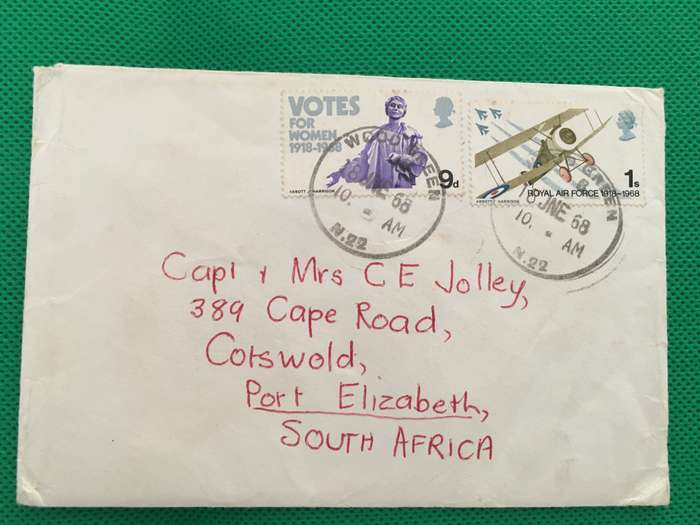 VOTES
FOR
WOMEN
1918-1968
9d
ABBOTT / HARRISON
1s
ROYAL AIR FORCE 1918-1968
HARRISON
WOOD GREEN
JNE 68
10. AM
N.22
GREEN
8 JNE 68
10. AM
N.22
Capt & Mrs C E Jolley,
389 Cape Road,
Cotswold,
Port Elizabeth,
SOUTH AFRICA